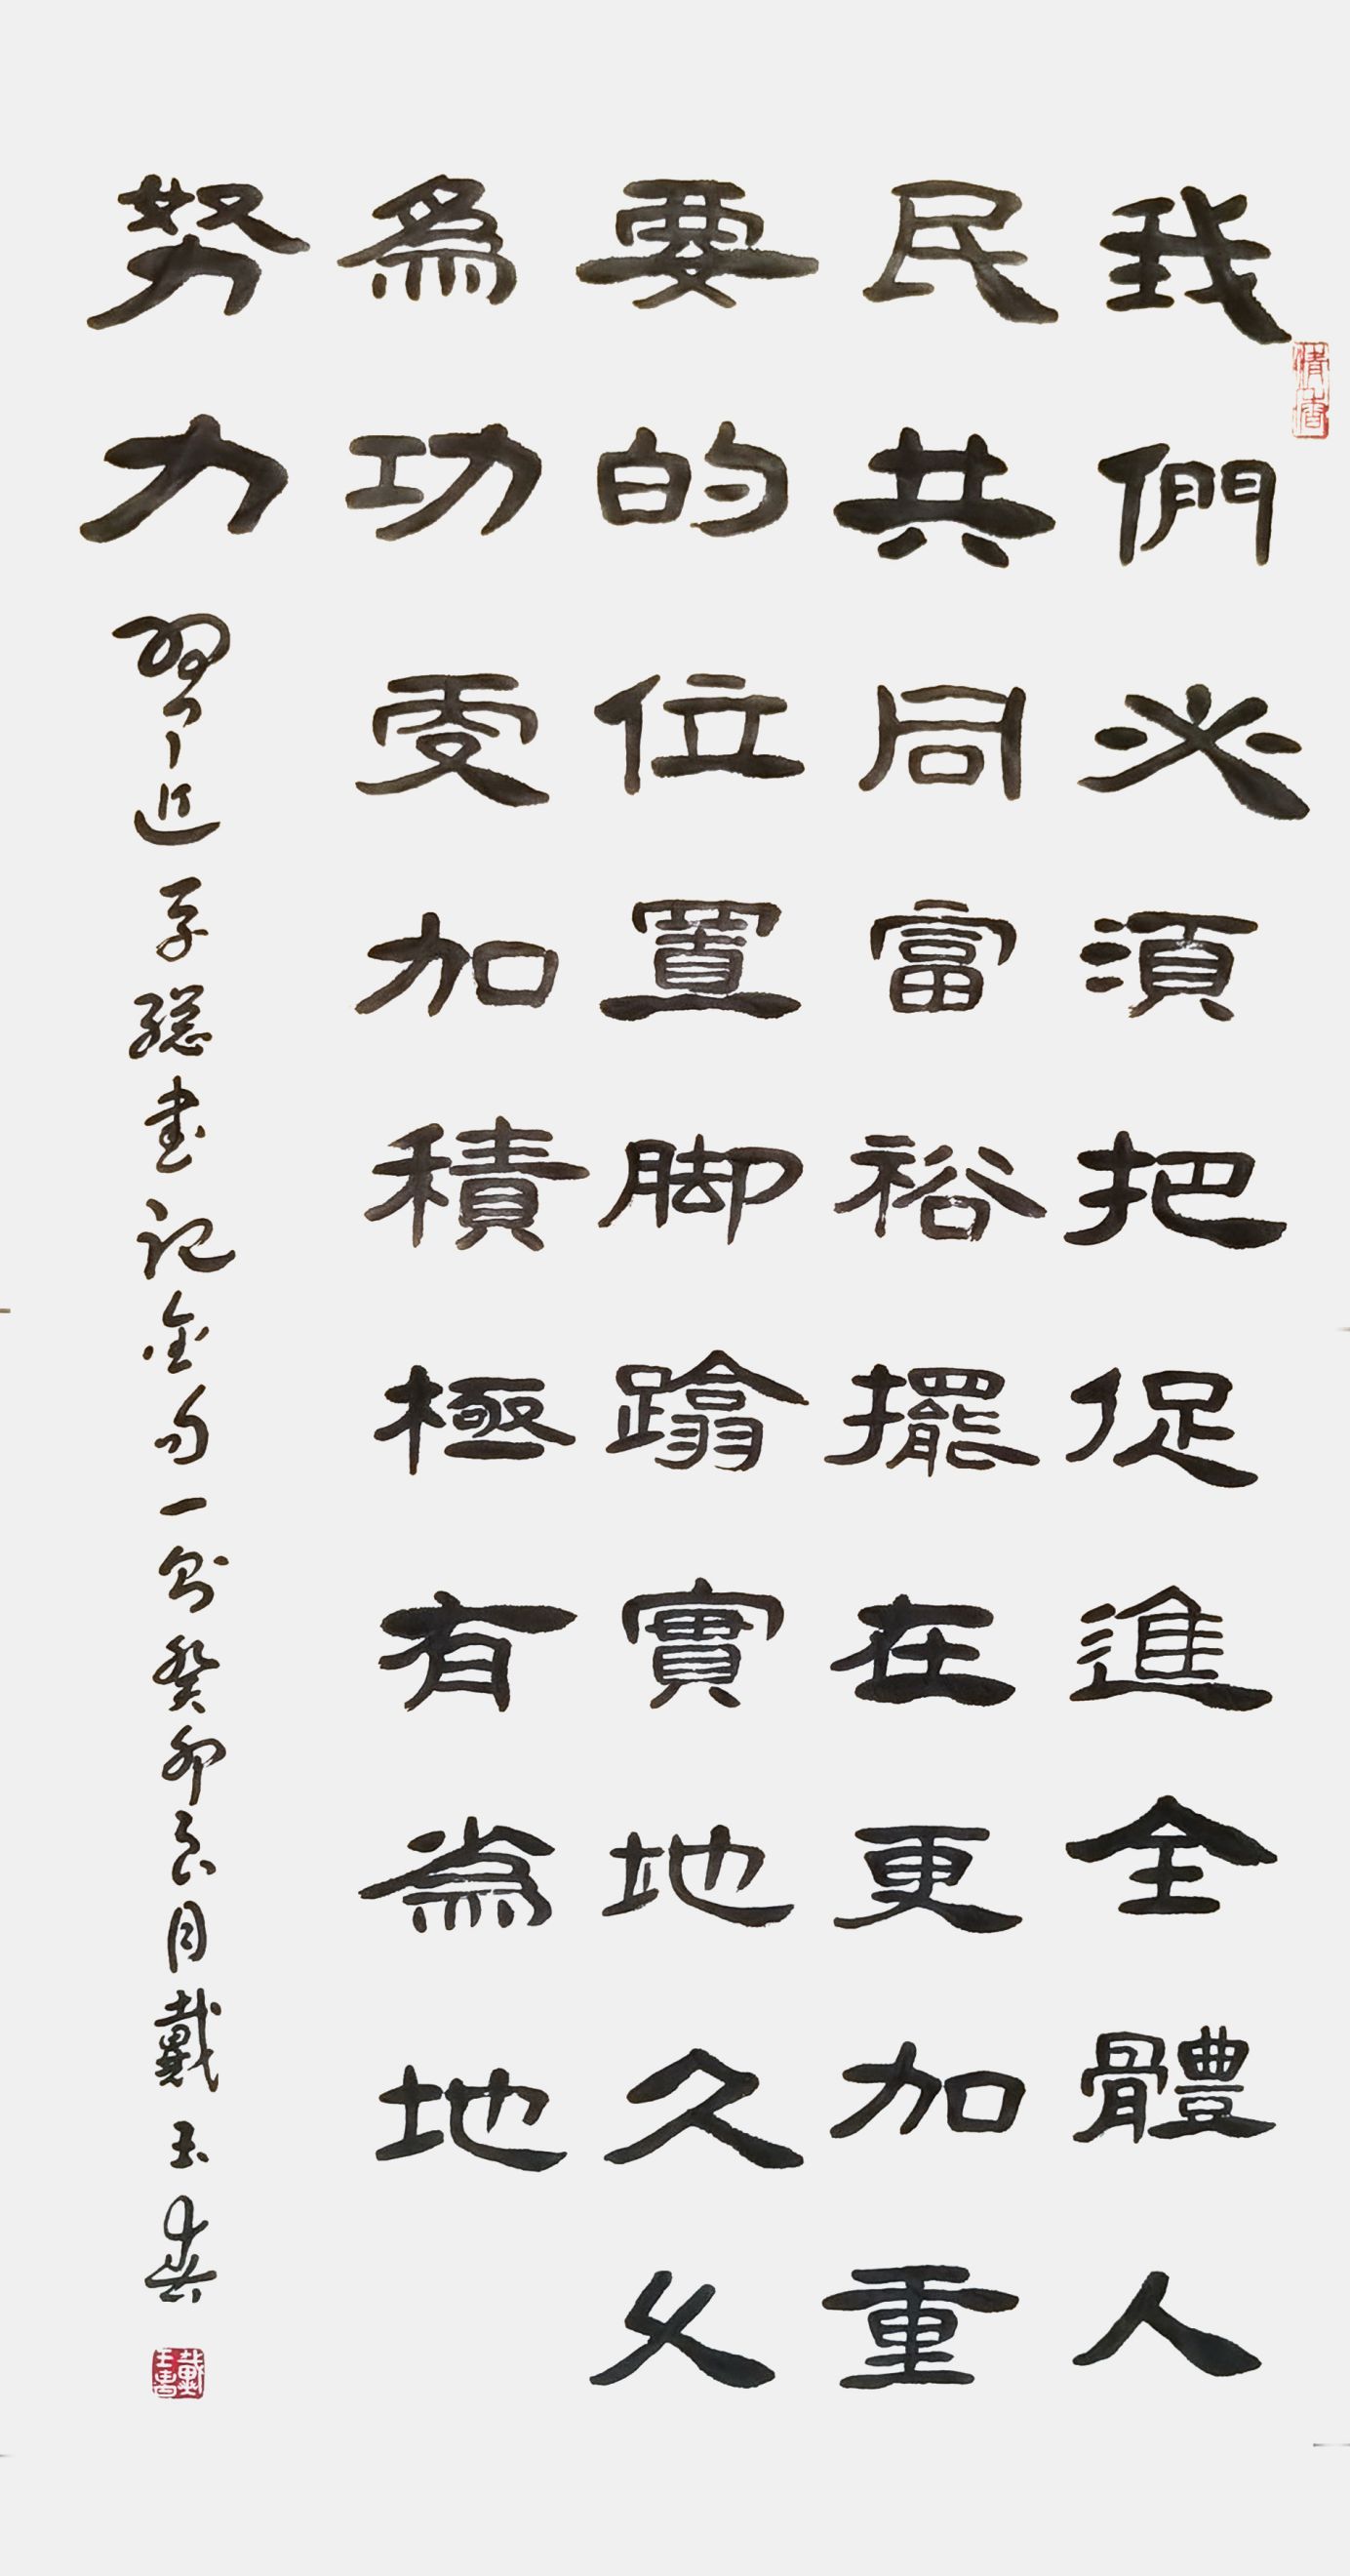 我們必須把促進全體人
民共同富裕擺在更加重
要的位置脚踏實地久久
為功更加積極有為地
努力 習近平總書記金句一則癸卯良月戴玉